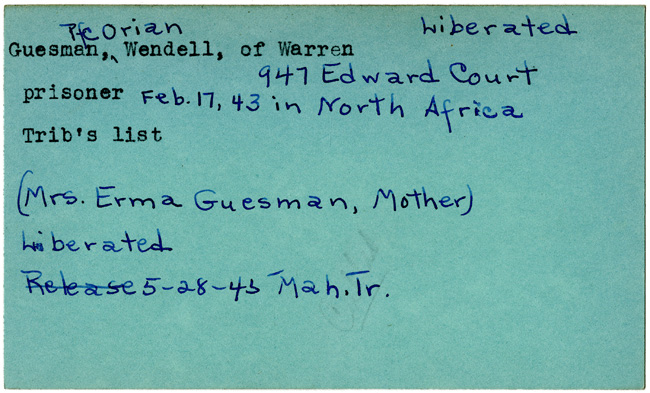 Pfc Orian Liberated
Guesman, Wendell, of Warren
947 Edward Court
prisoner Feb. 17, 43 in North Africa
Trib's list
(Mrs. Erma Guesman, Mother)
Liberated
Release 5-28-45 Mah. Tr.